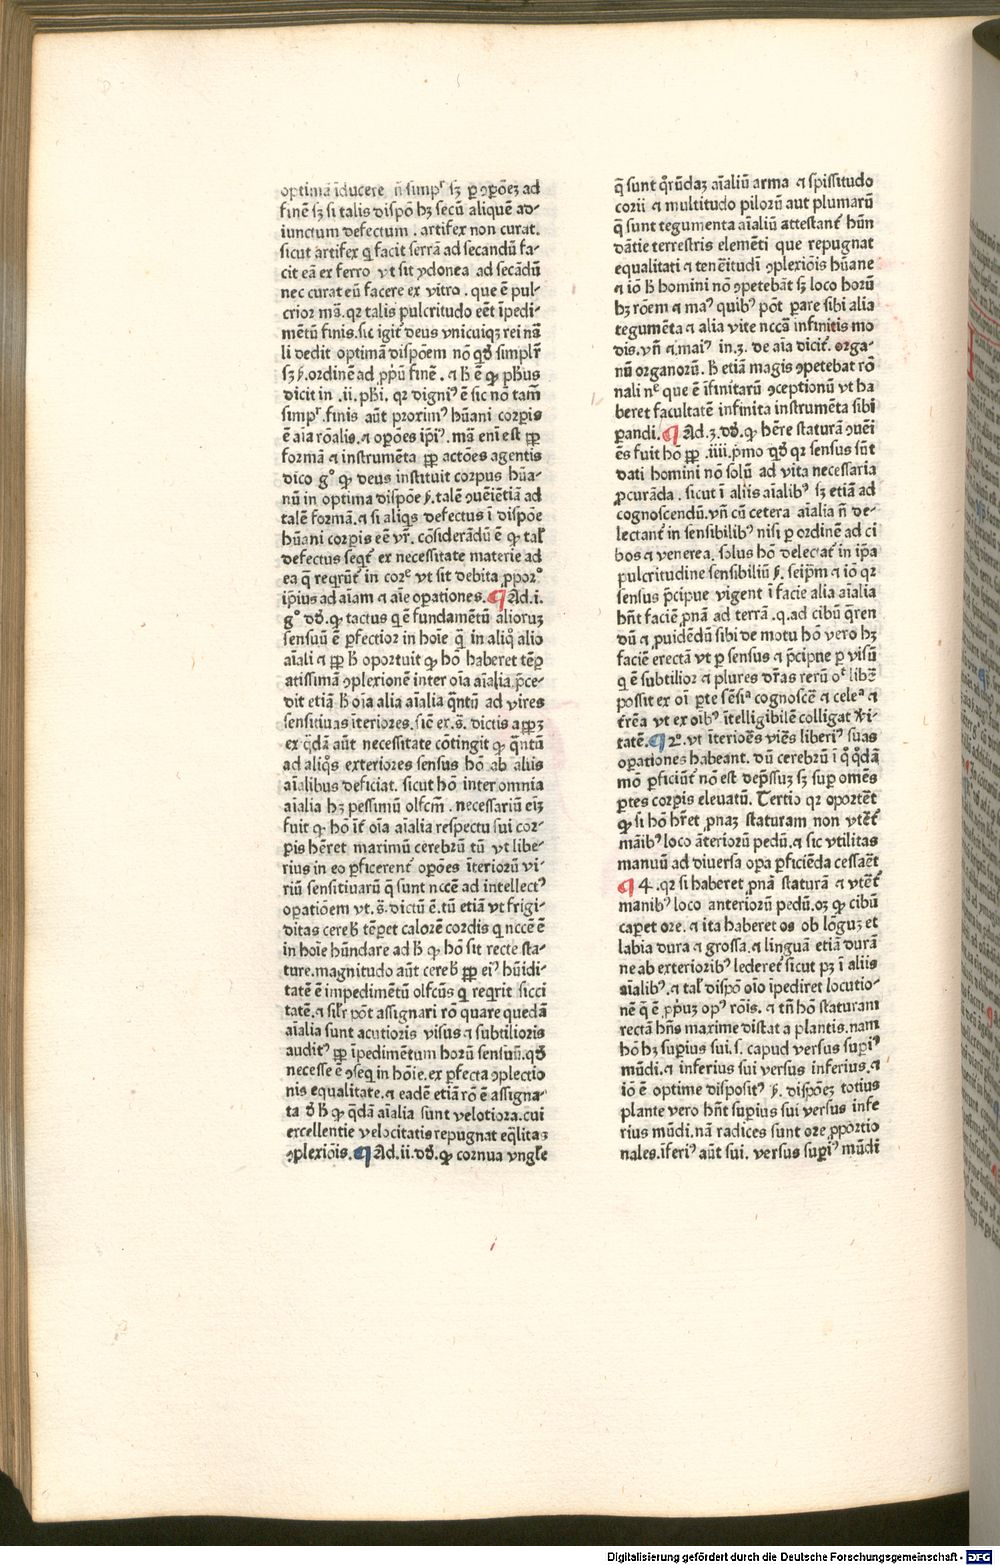 optimā īducere n̄ simpʳ sꝫ ꝑ ꝯꝑōeꝫ ad
finē sꝫ si talis dispō hꝫ secū aliquē ad-
iunctum defectum . artifex non curat.
sicut artifex q̇ facit serrā ad secandū fa-
cit eā ex ferro vt sit ydonea ad secādū
nec curat eū facere ex vitro . que ē pul-
crior mā. qꝛ talis pulcritudo eēt īpedi-
mētū finis. sic igit̄ deus vnicuiqꝫ rei nāͣ
li dedit optimā dispōem nō qͦd simplr̄
sꝫ ẜ. ordinē ad ꝓpʳū finē . ⁊ h̄ ē qͦ pħus
dicit in .ii. pħi. qꝛ digniꝰ ē sic nō tam̄
simpʳ. finis aūt proximꝰ hūani corꝑis
ē aīa rōalis. ⁊ oꝑōes ip̄iꝰ. mā eni est ꝓp̄
formā ⁊ instrumēta ꝓp̄ actōes agentis
dico gͦ ꝙ deus instituit corpus hūa-
nū in optima dispōe ẜ. talē ꝯuēiētiā ad
talē formā. ⁊ si aliqͥs defectus ī dispōe
hūani corꝑis eē vr̄. cōsiderādū ē ꝙ tał
defectus seqt̄ ex necessitate materie ad
ea q̄ reqrūt̄ in corꝑͤ vt sit debita ꝓporᵒ
ip̄ius ad aīam ⁊ aīe oꝑationes. ¶ Ad .i.
gͦ dd̄. ꝙ tactus q ē fundamētū alioruꝫ
sensuū ē ꝑfectior in hoīe q̄ in aliqͦ alio
aīali ⁊ ꝓp̄ h̄ oportuit ꝙ hō haberet tēꝑ
atissimā ꝯplexionē inter oīa aīalia. p̄ce-
dit etiā h̄ oīa alia aīalia qͣntū ad vires
sensitiuas īteriores. sic̄ ex .s̄. dictis apꝑꝫ
ex qͣdā aūt necessitate cōtingit ꝙ qͣntū
ad aliqͦs exteriores sensus hō ab aliis
aīalibus deficiat. sicut hō inter omnia
aīalia hꝫ pessimū olfcm̄ . necessariū eīꝫ
fuit ꝙ hō īt̄ oīa aīalia respectu sui cor-
ꝑis hēret marimū cerebrū tū vt libe-
rius in eo ꝑficerent̄ oꝑōes īteriorū vi-
riū sensitiuarū q̄ sunt nccē ad intellectꝰ
oꝑatiōem vt. s̄. dictū ē. tū etiā vt frigi-
ditas cereb̄ tēꝑet calorē cordis q nccē ē
in hoīe hūndare ad h̄ ꝙ hō sit recte sta-
ture. magnitudo aūt cereb̄ ꝓp̄ eiꝰ hūidi-
tatē ē impedimētū olfcūs q reqrit sicci
tatē. ⁊ silr̄ pōt assignari rō quare quedā
aīalia sunt acutioris visus ⁊ subtilioris
auditꝰ ꝓp̄ īpedimētum horū sensuū. qͦd
necesse ē ꝯseq in hoīe. ex ꝑfecta ꝯplectio
nis equalitate. ⁊ eadē etiā rō ē assigna-
ta d̄ h̄ ꝙ qͣdā aīalia sunt velotiora. cui
excellentie velocitatis repugnat eq̄litaꝫ
ꝯplexiōis. ¶ Ad .ii. dd̄. ꝙ cornua vngłe
q̄ sunt qͦrūdaꝫ aīaliū arma ⁊ spissitudo
corii ⁊ multitudo pilorū aut plumarū
q̄ sunt tegumenta aīaliū attestant̄ hūn
dātie terrestris elemēti que repugnat
equalitati ⁊ tenēitudī ꝯplexiōis hūane
⁊ iō h̄ homini nō ꝯpetebāt sꝫ loco horū
hꝫ rōem ⁊ maꝰ quibꝰ pōt ꝑare sibi alia
tegumēta ⁊ alia vite nccā infinitis mo
dis. vn̄ ⁊ maiꝰ in .3. de aīa dicit̄. orga-
nū organorū. h̄ etiā magis ꝯpetebat rō
nali nͤ que ē īfinitarū ꝯceptionū vt ha
beret facultatē infinita instrumēta sibi
ꝑandi. ¶ Ad .3. dd̄. ꝙ hēre staturā ꝯuēi
ēs fuit hō ꝓp̄ .iiii. pͥmo qͦd qꝛ sensus sūt
dati homini nō solū ad vita necessaria
ꝓcurāda . sicut ī aliis aīalibꝰ sꝫ etiā ad
cognoscendū. vn̄ cū cetera aīalia n̄ de-
lectant̄ in sensibilibꝰ nisi ꝑ ordinē ad ci
bos ⁊ venerea. solus hō delectat̄ in ip̄a
pulcritudine sensibiliū ẜ. seip̄m ⁊ iō qꝛ
sensus p̄cipue vigent ī facie alia aīalia
hn̄t faciē ꝓnā ad terrā .q. ad cibū qͣren
dū ⁊ ꝓuidēdū sibi de motu hō vero hꝫ
faciē erectā vt ꝑ sensus ⁊ p̄cipue ꝑ visū
q ē subtilior ⁊ plures dr̄as rerū oᵗ libꝫ
possit ex oī ꝑte sēsiᵃ cognoscē ⁊ celeᵃ ⁊
tr̄ea vt ex oībꝰ ītelligibilē colligat v̄i-
tatē. ¶ 2º. vt īterioēs viēs liberiꝰ suas
oꝑationes habeant. dū cerebrū ī qͦ qͦdā
mō ꝑficiūt̄ nō est dep̄ssuꝫ sꝫ suꝑ omēs
ꝑtes corꝑis eleuatū. Tertio qꝛ oportēt
ꝙ si hō hr̄et ꝓnaꝫ staturam non vtēt̄
māibꝰ loco āteriorū pedū. ⁊ sic vtilitas
manuū ad diuersa oꝑa ꝑficiēda cessaēt
¶ 4 . qꝛ si haberet ꝓnā staturā ⁊ vtēt̄
manibꝰ loco anteriorū pedū. oꝫ ꝙ cibū
caꝑet ore. ⁊ ita haberet os ob lōguꝫ et
labia dura ⁊ grossa. ⁊ linguā etiā durā
ne ab exterioribꝰ lederet̄ sicut pꝫ ī aliis
aīalibꝰ. ⁊ tał dispō oīo īpediret locutio-
nē q̄ ē ꝓpͥuꝫ opꝰ rōis. ⁊ tn̄ hō staturam
rectā hn̄s maxime distat a plantis. nam
hō hꝫ suꝑius sui .s. capud versus suꝑiꝰ
mūdi. ⁊ inferius sui versus inferius. ⁊
iō ē optime dispositꝰ ẜ. dispōeꝫ totius
plante vero hn̄t suꝑius sui versus infe
rius mūdi. nā radices sunt ore ꝓportio
nales. īferiꝰ aūt sui. versus suꝑiꝰ mūdi
Digitalisierung gefördert durch die Deutsche Forschungsgemeinschaft - DFG